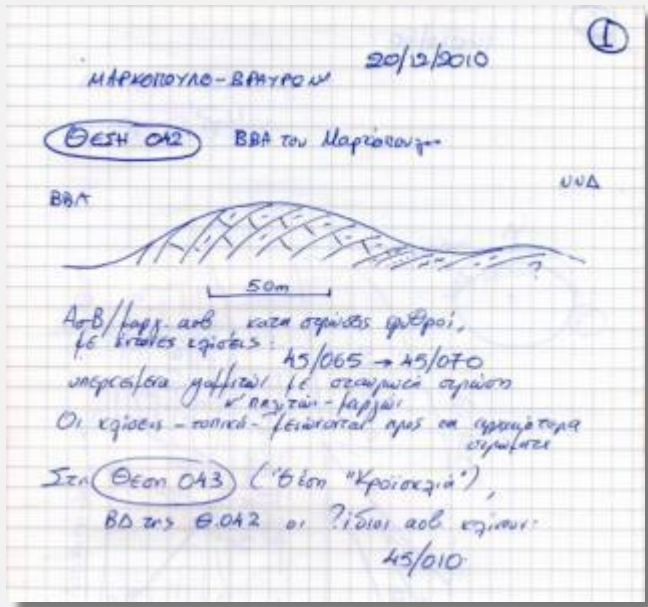 1
20/12/2010
ΜΑΡΚΟΠΟΥΛΟ - ΒΡΑΥΡΩΝΑ
ΘΕΣΗ 042 ΒΒΑ του Μαρκόπουλου
ΒΒΑ ΝΝΔ
?
50m
ΑσΒ/μαργ. ασβ. κατά στρώσεις ερυθροί,
με έντονες κλίσεις:
45/065 → 45/070
υπερκείμενα ψαμμιτών με σταυρωτή στρώση
κ' πηλιτών - μαργών
Οι κλίσεις - τοπικά - μειώνονται προς τα στρώματα
Στη Θέση 043 (θέση "Κροϊσκλιά"),
ΒΔ της Θ.042 οι ?ίδιοι ασβ κλίνουν:
45/010